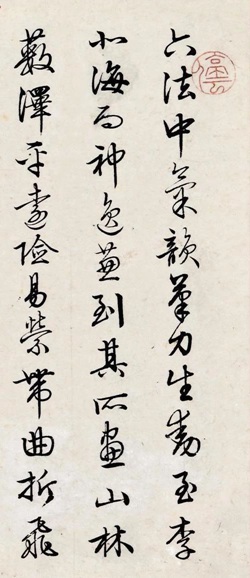 六法中氣韻筆力生動至李
北海而神逸兼到其所畫山林
藪澤平遠險易縈帶曲折飛